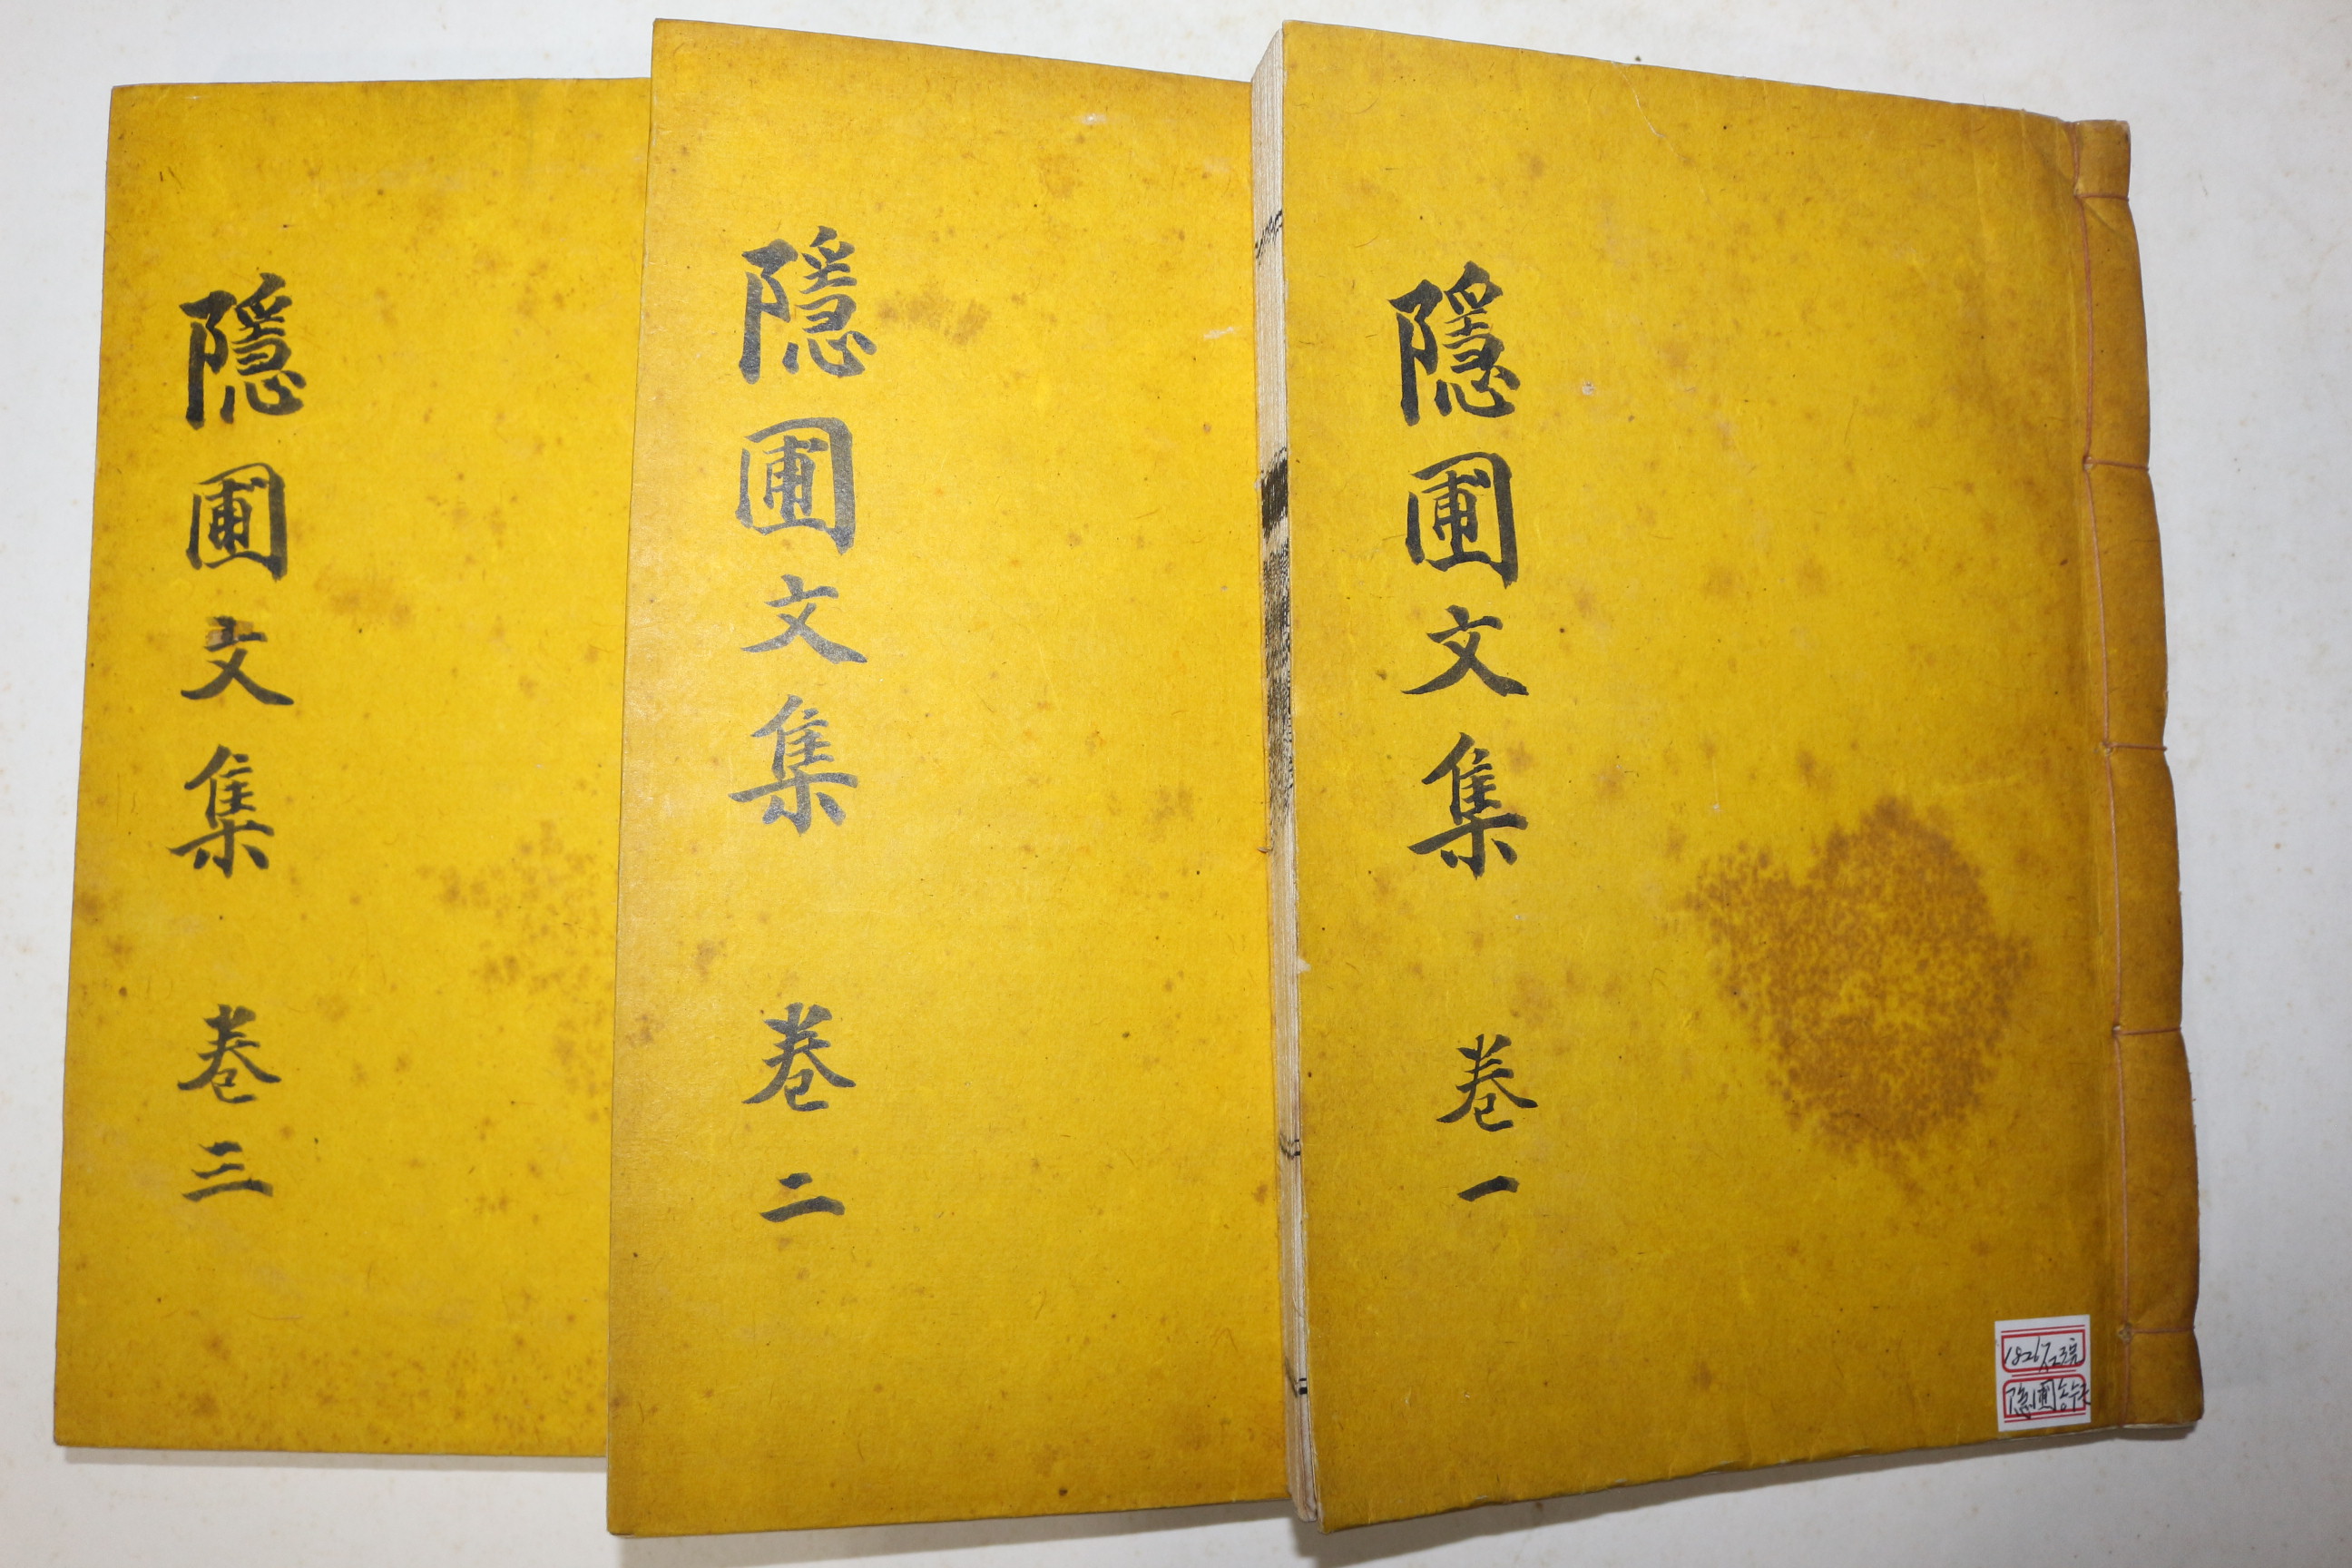 隱圃文集 卷一
隱圃文集 卷二
隱圃文集 卷三
隱圃